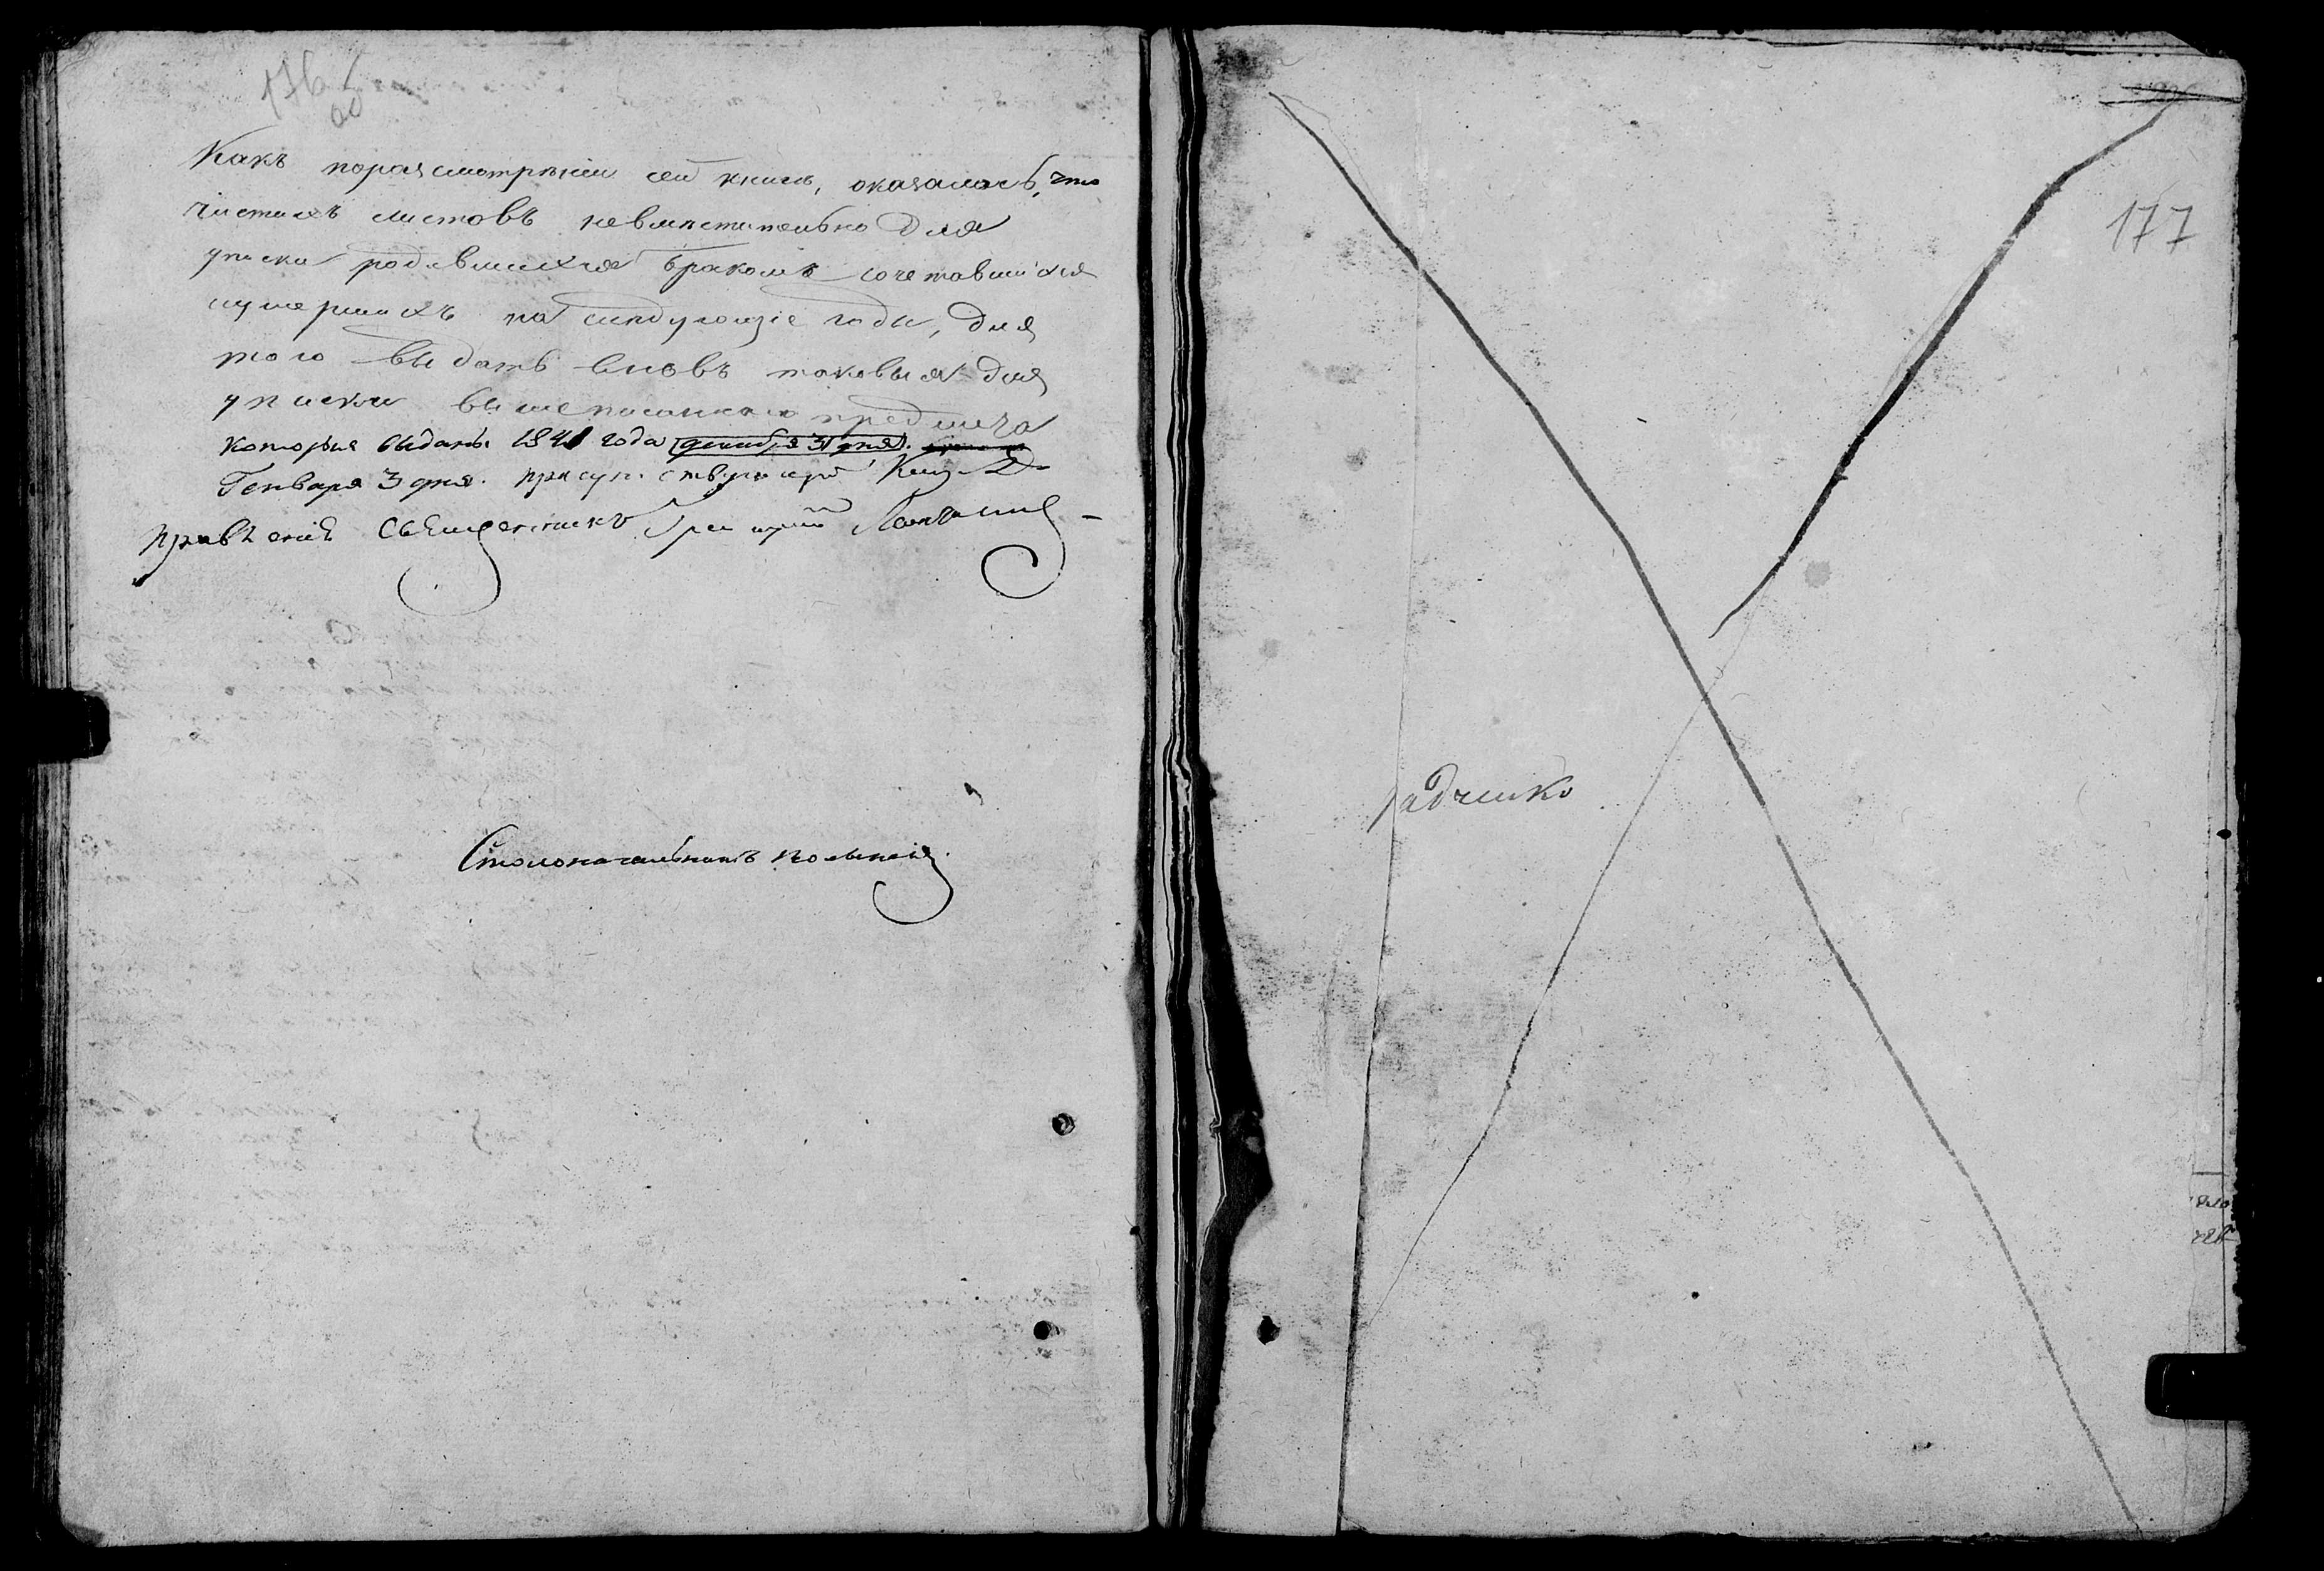 176 об
Какъ поразсмотрѣнии сей книги, оказалось, что
чистыхъ листовъ невмѣстительно для
уписки родившихся бракомъ сочетавшихся
иумершихъ на слѣдующіе годы, для
того выдать вновь таковыя для
уписки вышеписаннаго предмета
которые выданы 1841 года декабря 31 дня.
Генваря 3 дня. присутствующій
правленія Священникъ Григорій
Столоначальникъ
177